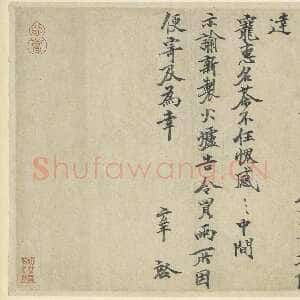 達
寵惠名茶不任愧感〻中間
示諭新製火爐告令買兩所因
便寄及為幸
Shufawang.CN